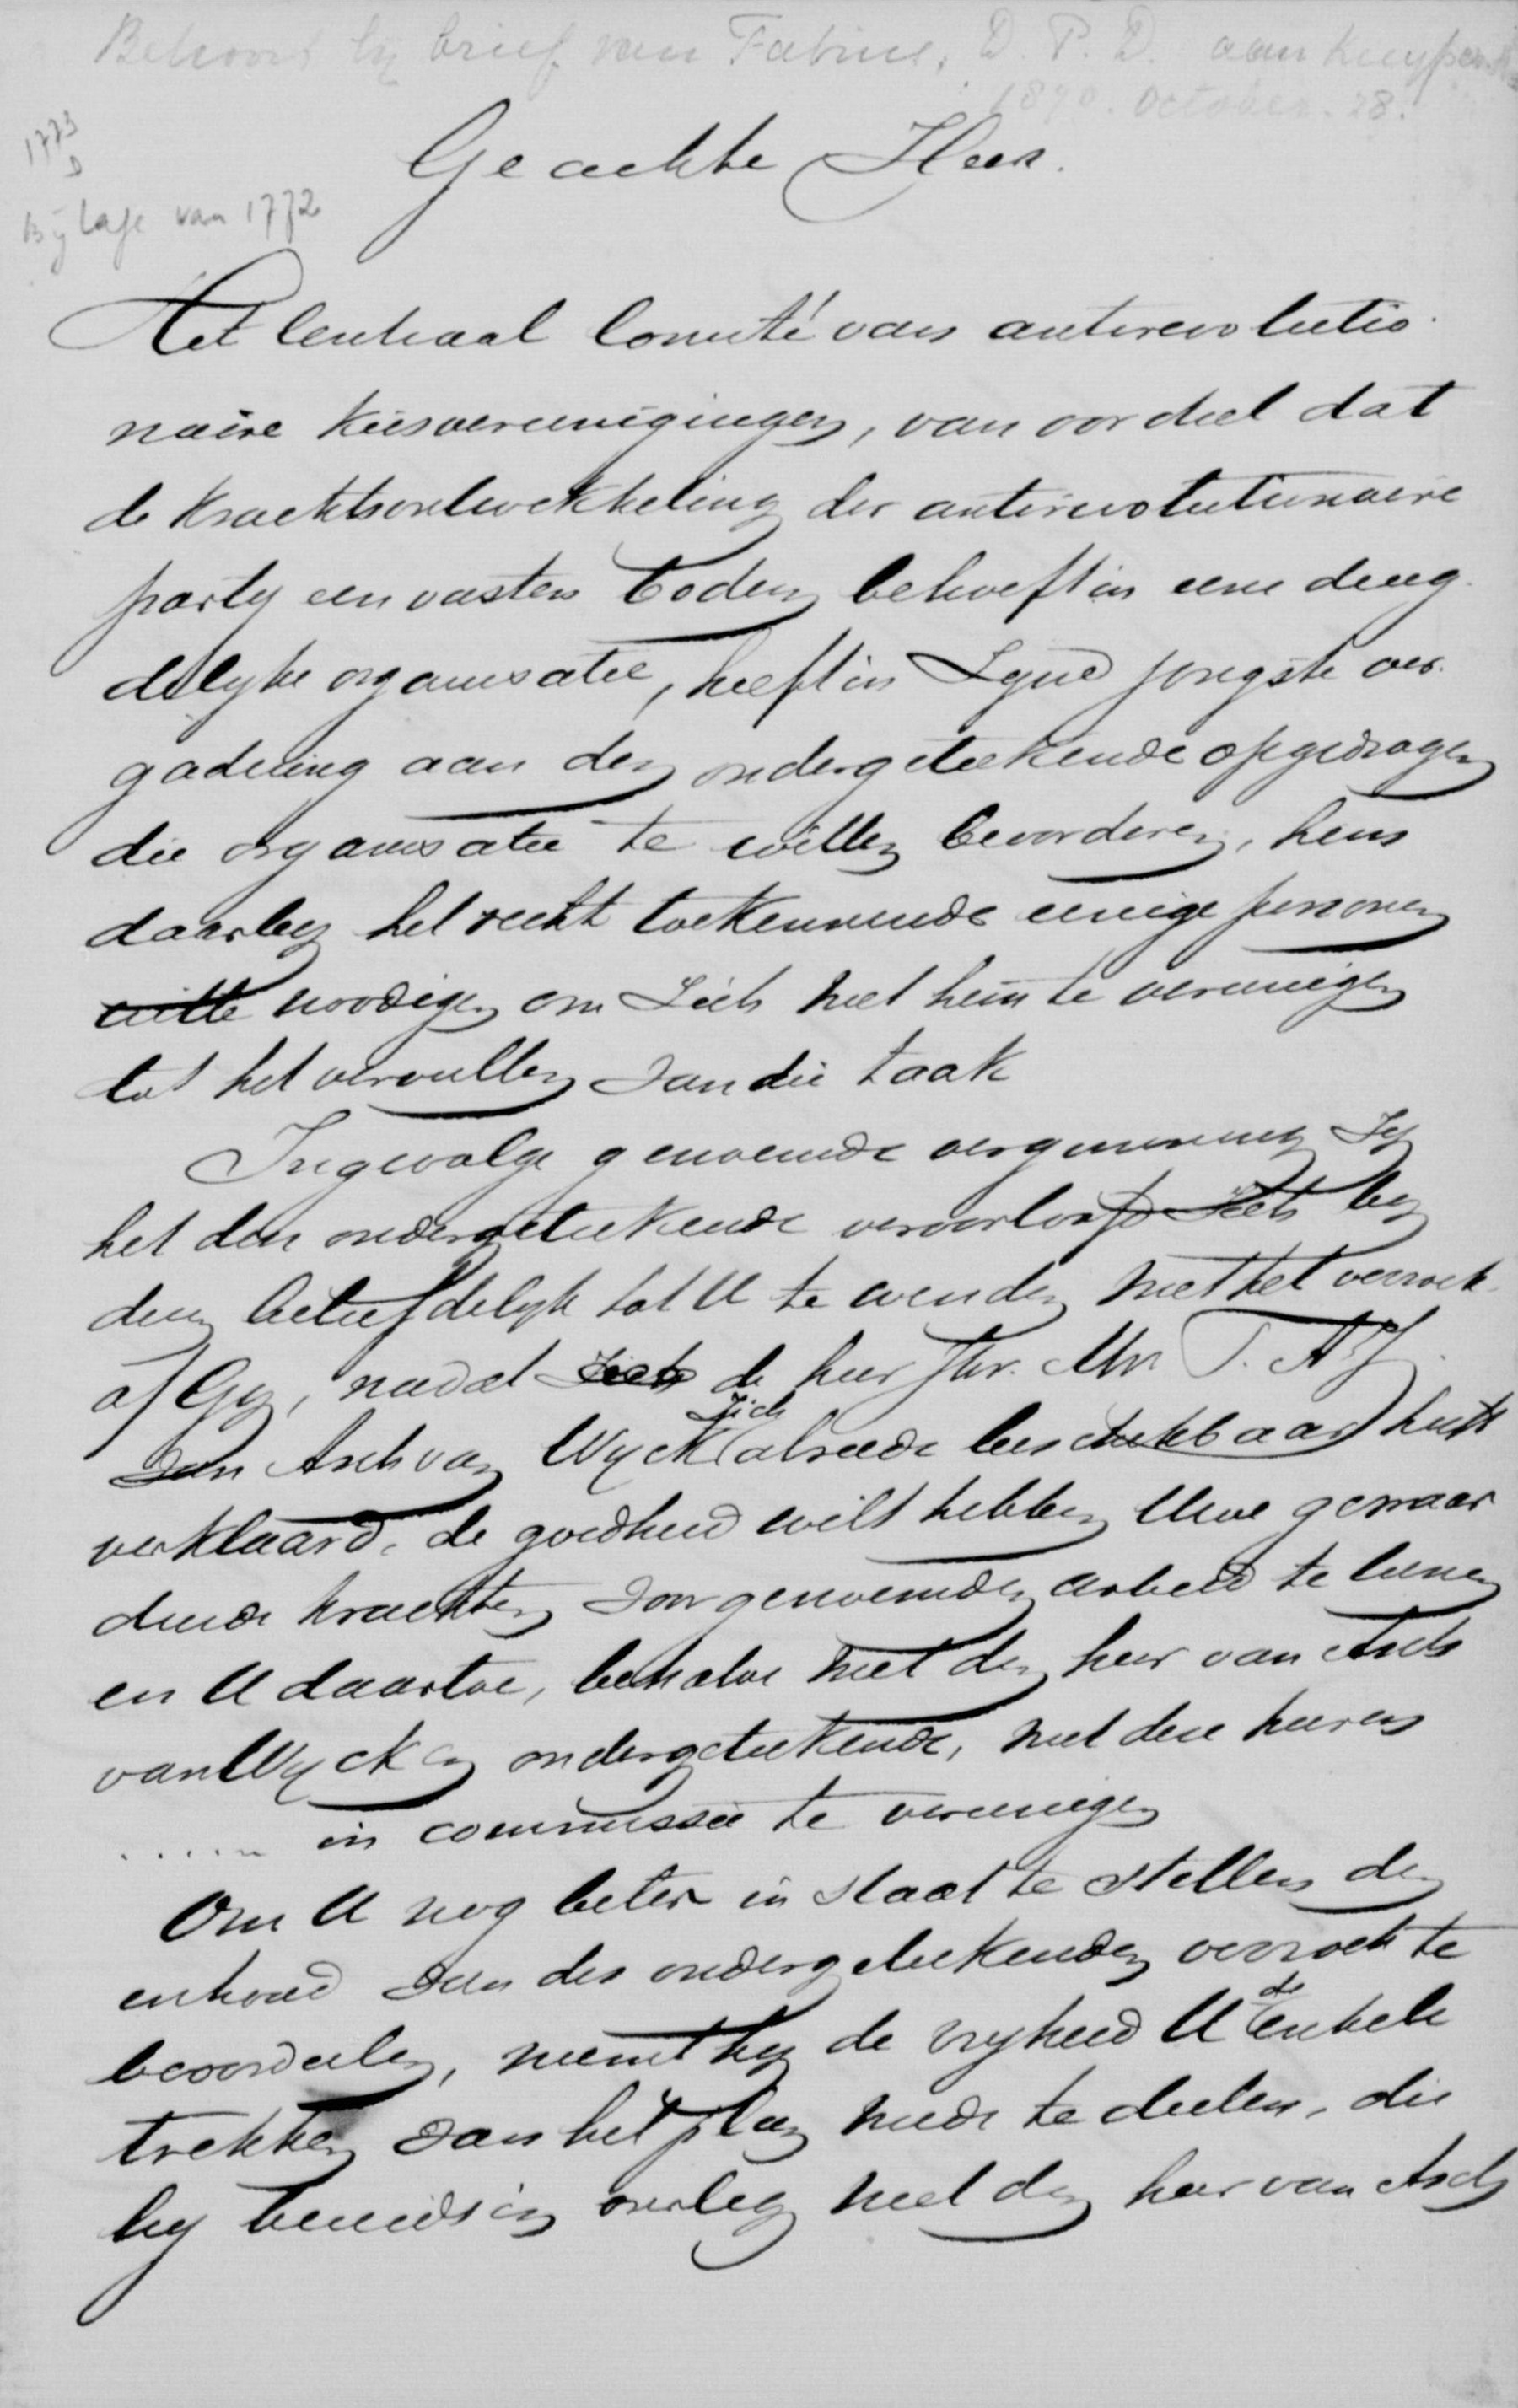 Behoort bij brief van Fabius, D. P. D. aan Kuyper
1890. October. 28.
1773
Bijlage van 1772
Geachte Heer.
Het Centraal Comité van antirevolutio-
naire Kiesvereenigingen, van oordeel dat
de Krachtsontwikkeling der antirevolutionaire
party een vasten bodem behoeft in eene deug-
delyke organisatie, heeft in Zyne jongste ver-
gadering aan den ondergeteekende opgedragen
die organisatie te willen bevorderen, hem
daarby het recht toekennende eenige personen
uitte noodigen om Zich met hem te vereenigen
tot het vervullen van die taak
Ingevolge genoemde vergunning Zy
het den ondergeteekende veroorloofd Zich by
dezen beleefdelyk tot U te wenden met het verzoek
of Gy, nadat Zich de heer Jhr. Mr. T. A. J.
van Asch van Wyck Zich alreede beschikbaar heeft
verklaard, de goedheid wilt hebben Uwe gewaar-
deerde krachten voor genoemden arbeid te leenen
en U daartoe, behalve met den heer van Asch
van Wyck en ondergeteekende, met de heeren
...... in commissie te vereenigen
Om U nog beter in staat te stellen den
inhoud van des ondergeteekenden verzoek te
beoordeelen, neemt hy de vryheid U de enkele
trekken van het plan mede te deelen, die
hy in overleg met den heer van Asch